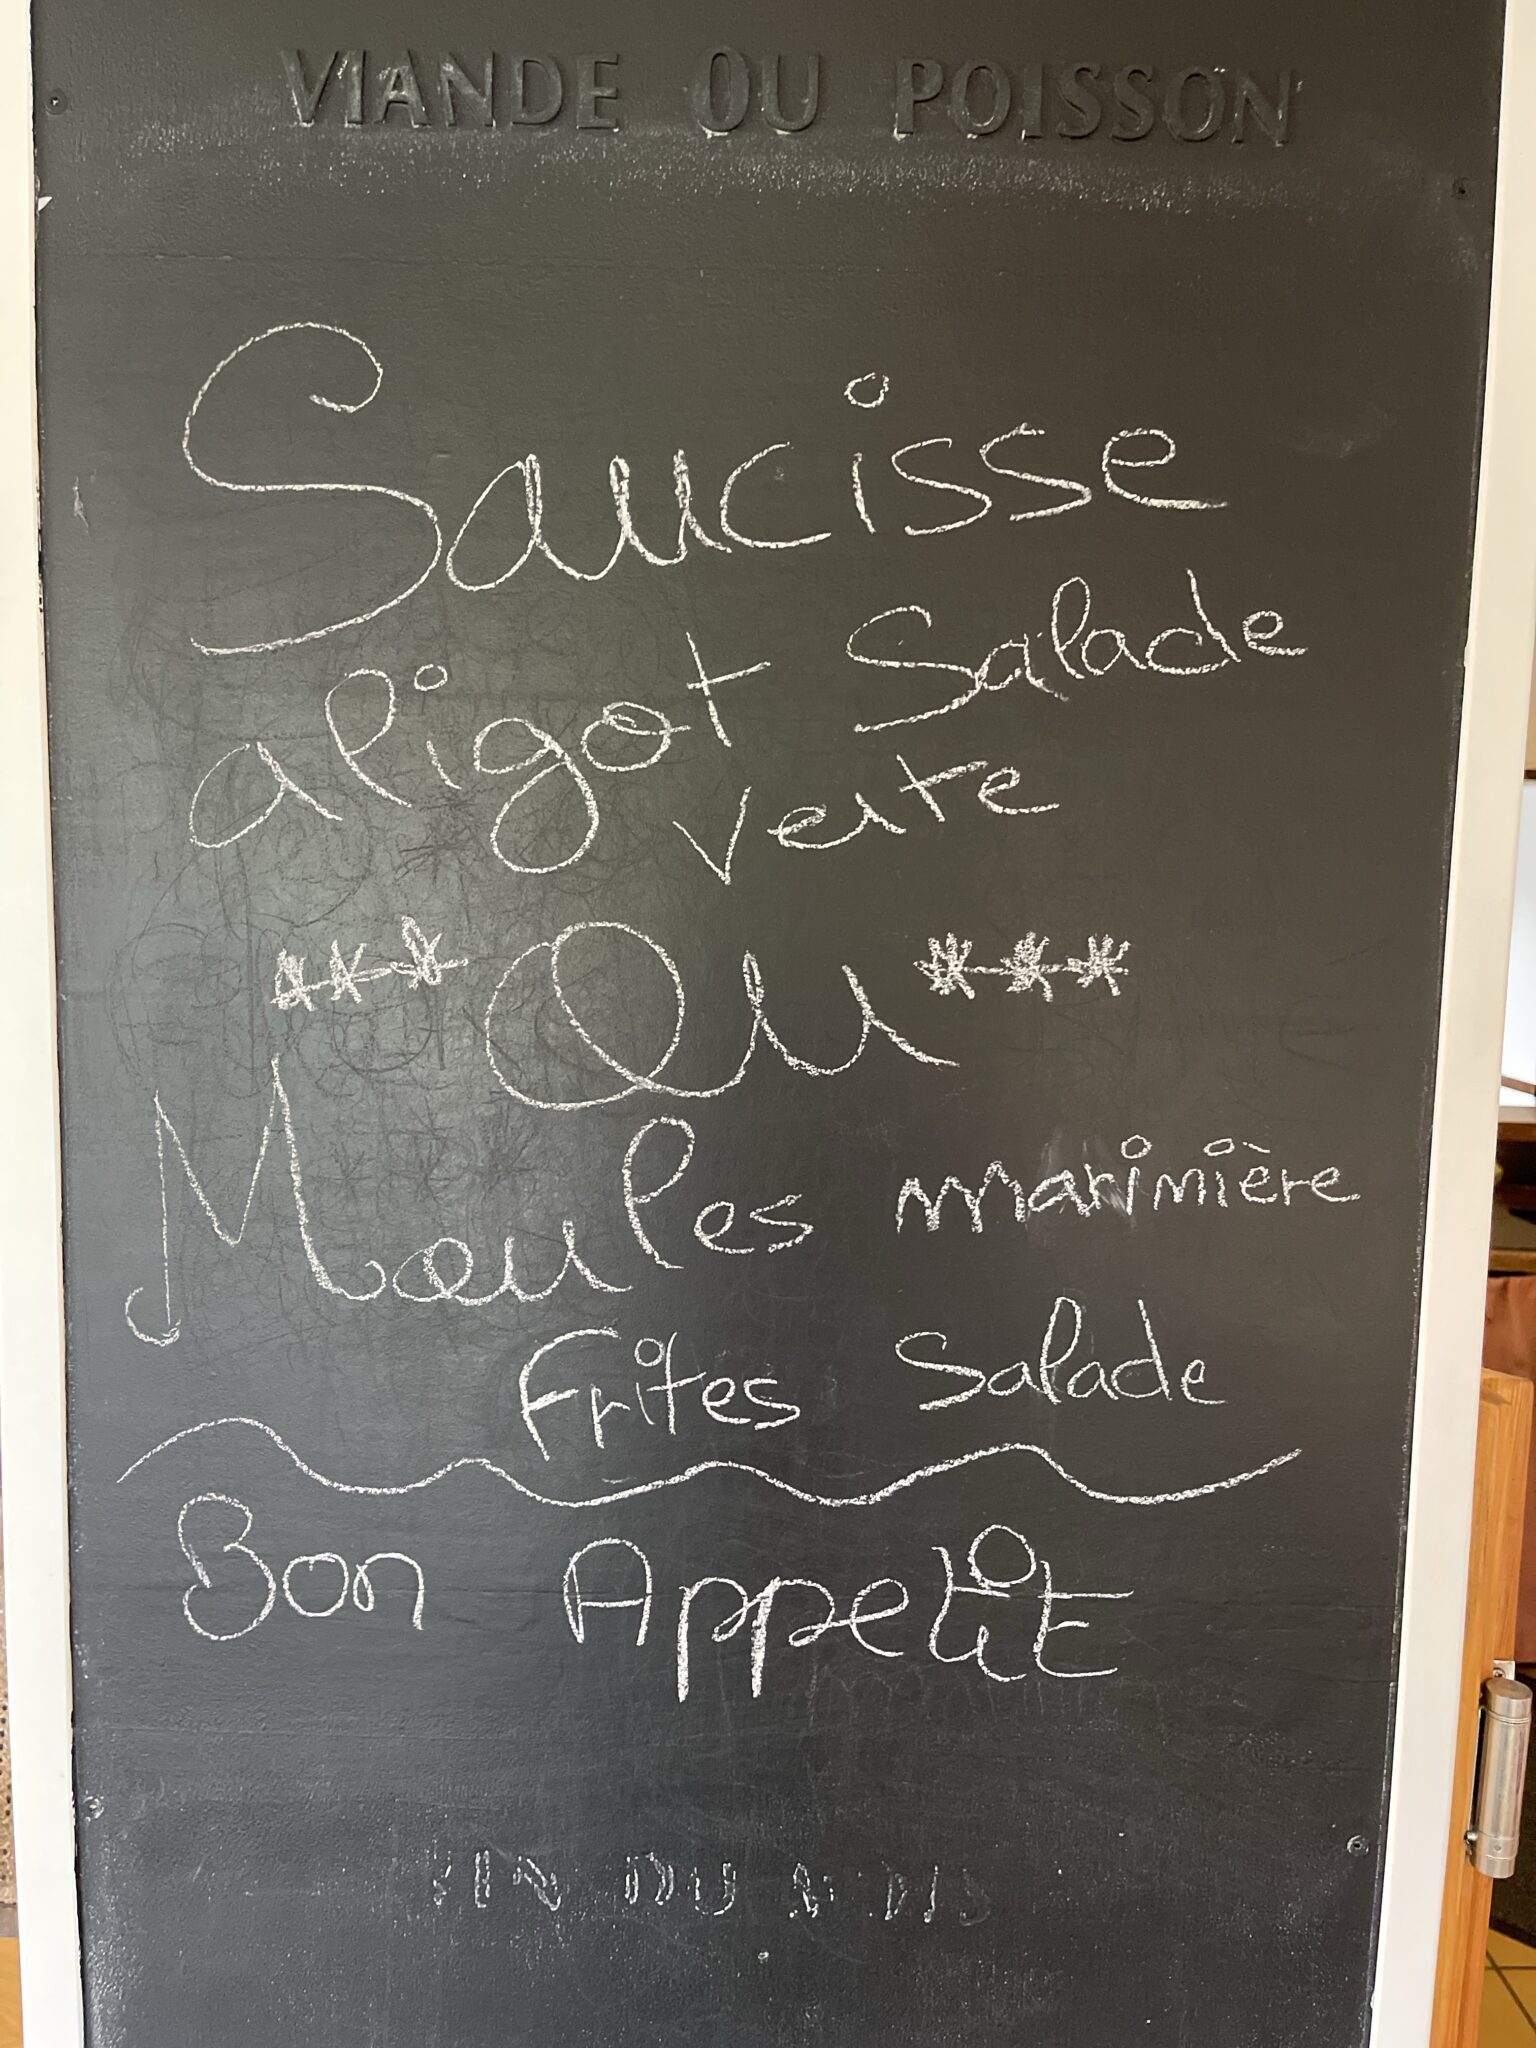 VIANDE OU POISSON
Saucisse
aligot Salade
verte
*** Ou ***
Moules marinière
Frites Salade
Bon Appetit
VIN DU MOIS